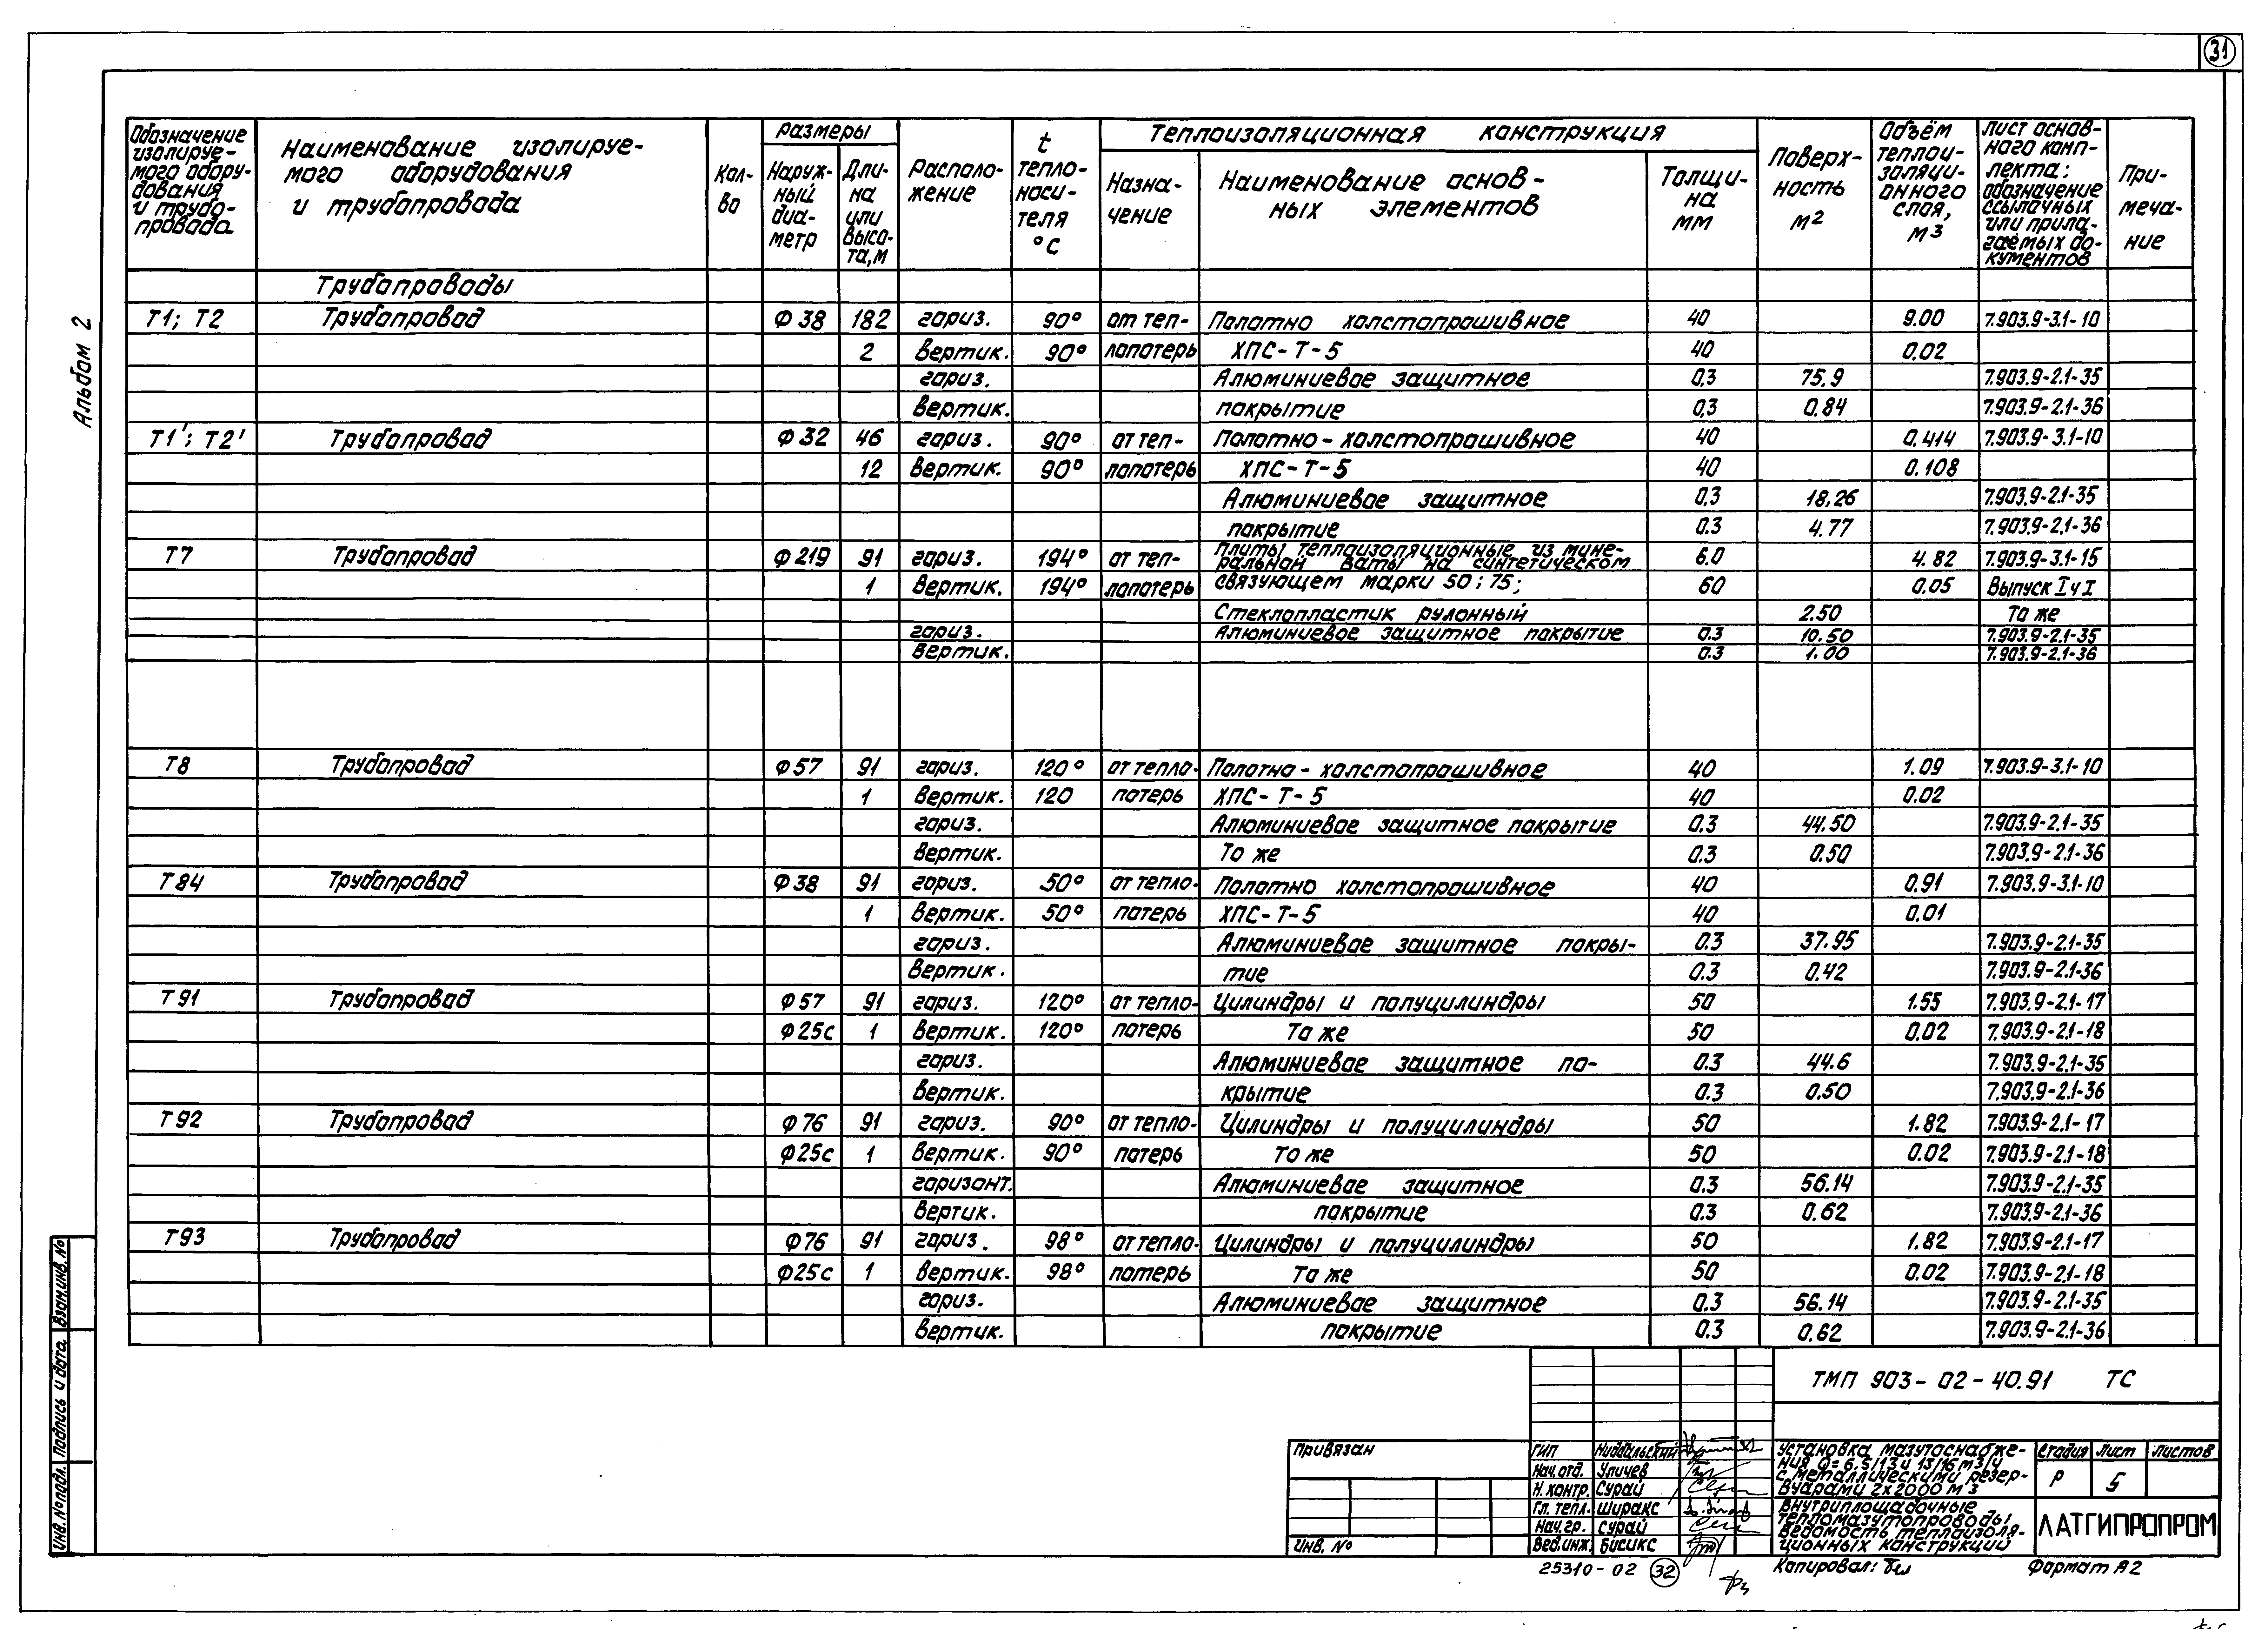 31
Альбом 2
Обозначение изолируе- мого обору- дования и трубо- провода
Наименование изолируе- мого оборудования и трубопровода
Кол- во
Размеры
Наруж- ный диа- метр
Дли- на или высо- та, м
Располо- жение
t тепло- носи- теля °С
Теплоизоляционная конструкция
Назна- чение
Наименование основ- ных элементов
Толщи- на мм
Поверх- ность м2
Объём теплои- золяци- онного слоя, м3
Лист основ- ного комп- лекта; обозначение ссылочных или прила- гаемых до- кументов
При- меча- ние
Трубопроводы
Т1; Т2 Трубопровод Ф38 182 гориз. 90° от теп- Полотно холстопрошивное 40 9.00 7.903.9-3.1-10
2 вертик. 90° лопотерь ХПС-Т-5 40 0.02
гориз. Алюминиевое защитное 0,3 75.9 7.903.9-2.1-35
вертик. покрытие 0,3 0.84 7.903.9-2.1-36
Т1'; Т2' Трубопровод Ф32 46 гориз. 90° от теп- Полотно-холстопрошивное 40 0.414 7.903.9-3.1-10
12 вертик. 90° лопотерь ХПС-Т-5 40 0.108
Алюминиевое защитное 0.3 18.26 7.903.9-2.1-35
покрытие 0.3 4.77 7.903.9-2.1-36
Т7 Трубопровод Ф219 91 гориз. 194° от теп- Плиты теплоизоляционные из мине- ральной ваты на синтетическом 6.0 4.82 7.903.9-3.1-15
1 вертик. 194° лопотерь связующем марки 50; 75; 60 0.05 Выпуск I ч I
Стеклопластик рулонный 2.50 То же
гориз. Алюминиевое защитное покрытие 0.3 10.50 7.903.9-2.1-35
вертик. 0.3 1.00 7.903.9-2.1-36
Т8 Трубопровод Ф57 91 гориз. 120° от тепло- Полотно-холстопрошивное 40 1.09 7.903.9-3.1-10
1 вертик. 120 потерь ХПС-Т-5 40 0.02
гориз. Алюминиевое защитное покрытие 0.3 44.50 7.903.9-2.1-35
вертик. То же 0.3 0.50 7.903.9-2.1-36
Т84 Трубопровод Ф38 91 гориз. 50° от тепло- Полотно холстопрошивное 40 0.91 7.903.9-3.1-10
1 вертик. 50° потерь ХПС-Т-5 40 0.01
гориз. Алюминиевое защитное покры- 0.3 37.95 7.903.9-2.1-35
вертик. тие 0.3 0.42 7.903.9-2.1-36
Т91 Трубопровод Ф57 91 гориз. 120° от тепло- Цилиндры и полуцилиндры 50 1.55 7.903.9-2.1-17
Ф25с 1 вертик. 120° потерь То же 50 0.02 7.903.9-2.1-18
гориз. Алюминиевое защитное по- 0.3 44.6 7.903.9-2.1-35
вертик. крытие 0.3 0.50 7.903.9-2.1-36
Т92 Трубопровод Ф76 91 гориз. 90° от тепло- Цилиндры и полуцилиндры 50 1.82 7.903.9-2.1-17
Ф25с 1 вертик. 90° потерь То же 50 0.02 7.903.9-2.1-18
горизонт. Алюминиевое защитное 0.3 56.14 7.903.9-2.1-35
вертик. покрытие 0.3 0.62 7.903.9-2.1-36
Т93 Трубопровод Ф76 91 гориз. 98° от тепло- Цилиндры и полуцилиндры 50 1.82 7.903.9-2.1-17
Ф25с 1 вертик. 98° потерь То же 50 0.02 7.903.9-2.1-18
гориз. Алюминиевое защитное 0.3 56.14 7.903.9-2.1-35
вертик. покрытие 0.3 0.62 7.903.9-2.1-36
Взам.инв.№
Подпись и дата
Инв.№подл.
ТМП 903-02-40.91 ТС
Привязан
Инв. №
ГИП
Нач. отд. Уличев
Н. контр. Сурай
Гл. тепл. Ширакс
Нач. гр. Сурай
Вед.инж. Бисикс
Установка мазутоснабже-
ния Q=6.5/13 и 13/16 м3/ч
с металлическими резер-
вуарами 2х2000 м3
Внутриплощадочные
тепломазутопроводы
Ведомость теплоизоля-
ционных конструкций
Стадия Лист Листов
Р 5
ЛАТГИПРОПРОМ
25310-02 32
Копировал:
Формат А2